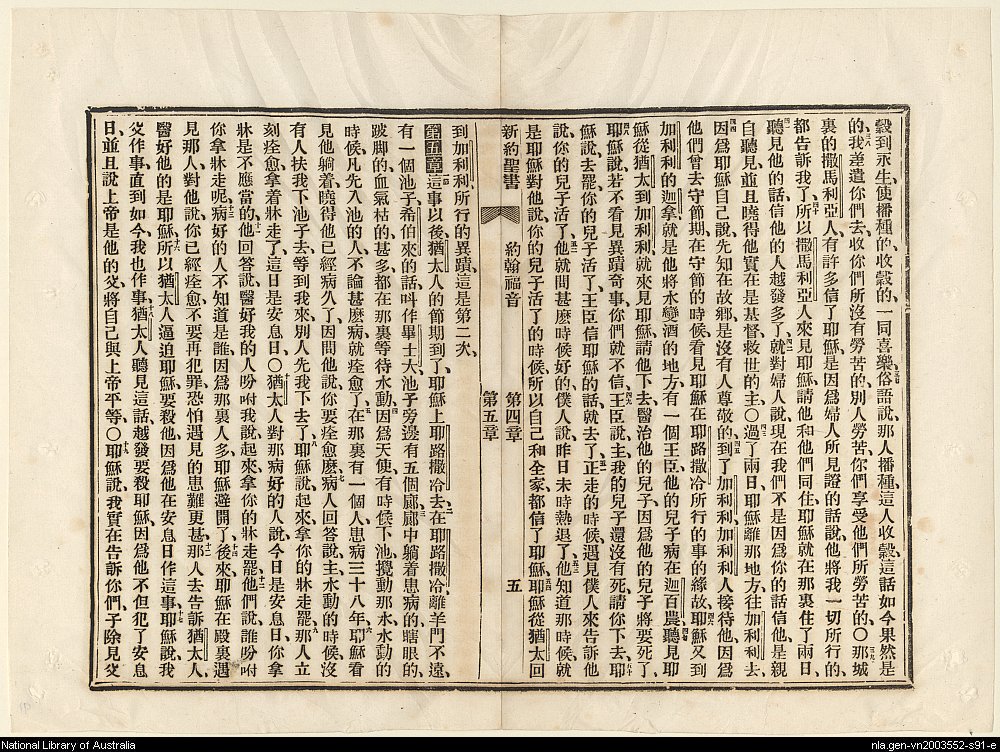 穀到永生使播種的收穀的、一同喜樂俗語說、那人播種、這人收穀這話如今果然是
的我差遣你們去收你們所沒有勞苦的別人勞苦你們享受他們所勞苦的○那城
裏的撒馬利亞人有許多信了耶穌、是因爲婦人所見證的話說、他將我一切所行的、
都告訴我了所以撒馬利亞人來見耶穌請他和他們同住、耶穌就在那裏住了兩日、
聽見他的話信他的人越發多了就對婦人說、現在我們不是因爲你的話信他是親
自聽見、並且曉得他實在是基督救世的主○過了兩日、耶穌離那地方、往加利利去、
因爲耶穌自己說先知在故鄉是沒有人尊敬的到了加利利、加利利人接待他、因爲
他們曾去守節期、在守節的時候、看見耶穌在耶路撒冷所行的事的緣故耶穌又到
加利利的迦拿就是他將水變酒的地方、有一個王臣、他的兒子病在迦百農、聽見耶
穌從猶太到加利利就來見耶穌請他下去、醫治他的兒子、因爲他的兒子將要死了、
耶穌說、若不看見異蹟奇事、你們就不信、王臣說、主我的兒子還沒有死請你下去、耶
穌說去罷、你的兒子活了、王臣信耶穌的話、就去了正走的時候遇見僕人來告訴他
說、你的兒子活了他就問甚麼時候好的僕人說、昨日未時熱退了他知道那時候就
是耶穌對他說你的兒子活了的時候所以自己和全家都信了耶穌、耶穌從猶太回
新約聖書 約翰福音 第四章 第五章 五
到加利利所行的異蹟、這是第二次、
第五章這事以後猶太人的節期到了耶穌上耶路撒冷去在耶路撒冷離羊門不遠、
有一個池子希伯來的話呌作畢士大、池子旁邊有五個廊廊中躺着患病的瞎眼的、
跛脚的、血氣枯的甚多、都在那裏等待水動、因爲天使有時候下池攪動那水、水動的
時候凡先入池的人、不論甚麼病就痊愈了在那裏有一個人患病三十八年、耶穌看
見他躺着、曉得他已經病久了、因問他說、你要痊愈麼病人回答說、主、水動的時候沒
有人扶我下池子去、等到我來別人先我下去了耶穌說、起來拿你的牀走罷那人立
刻痊愈拿着牀走了、這日是安息日、○猶太人對那病好的人說、今日是安息日、你拿
牀是不應當的他回答說、醫好我的人吩咐我說起來拿你的牀走罷他們說、誰吩咐
你拿牀走呢病好的人不知道是誰、因爲那裏人多、耶穌避開了後來、耶穌在殿裏遇
見那人、對他說、你已經痊愈、不要再犯罪、恐怕遇見的患難更甚、那人去告訴猶太人、
醫好他的是耶穌、所以猶太人逼迫耶穌、要殺他、因爲他在安息日作這事耶穌說、我
父作事直到如今、我也作事猶太人聽見這話、越發要殺耶穌、因爲他不但犯了安息
日、並且說上帝是他的父將自己與上帝平等、○耶穌說、我實在告訴你們、子除見父
National Library of Australia
nla.gen-vn2003552-s91-e